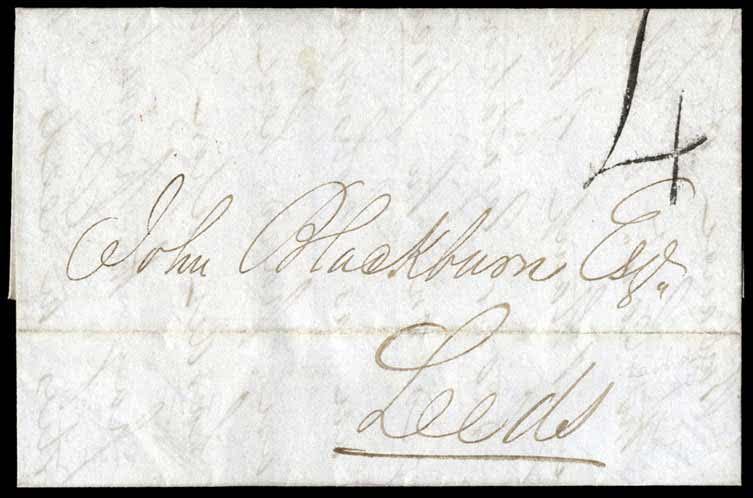 4
John Blackburn Esqr.
Leeds